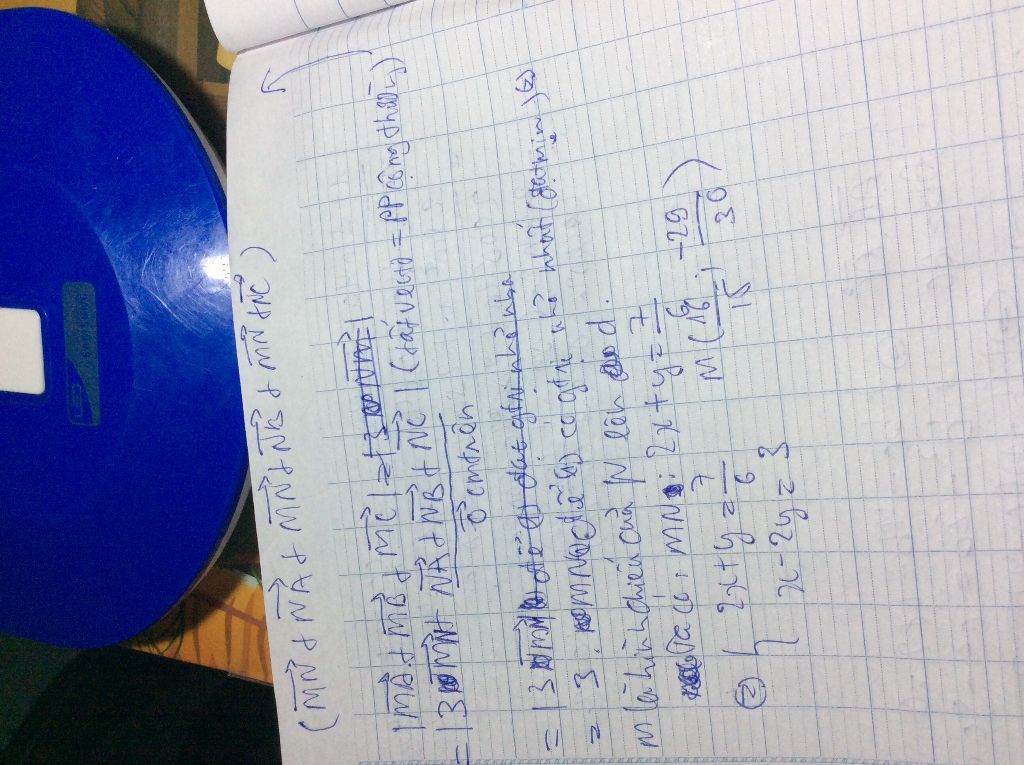 (MN⃗ + NA⃗ + MN⃗ + NB⃗ + MN⃗ + NC⃗)
|MA⃗ + MB⃗ + MC⃗| = |3 NM⃗|
= |3 MN⃗ + NA⃗ + NB⃗ + NC⃗| (tất vectơ = PP cộng thêm y)
0⃗ cmtrên
= |3 MN⃗| để (*) đạt gtrị nhỏ nha
= 3. MN để (*) có gtrị nhỏ nhất (đạt min)
M là hình chiếu của N lên d.
Ta có: MN: 2x + y = 7/6
② { 2x + y = 7/6
x - 2y = 3
M (16/15; -29/30)